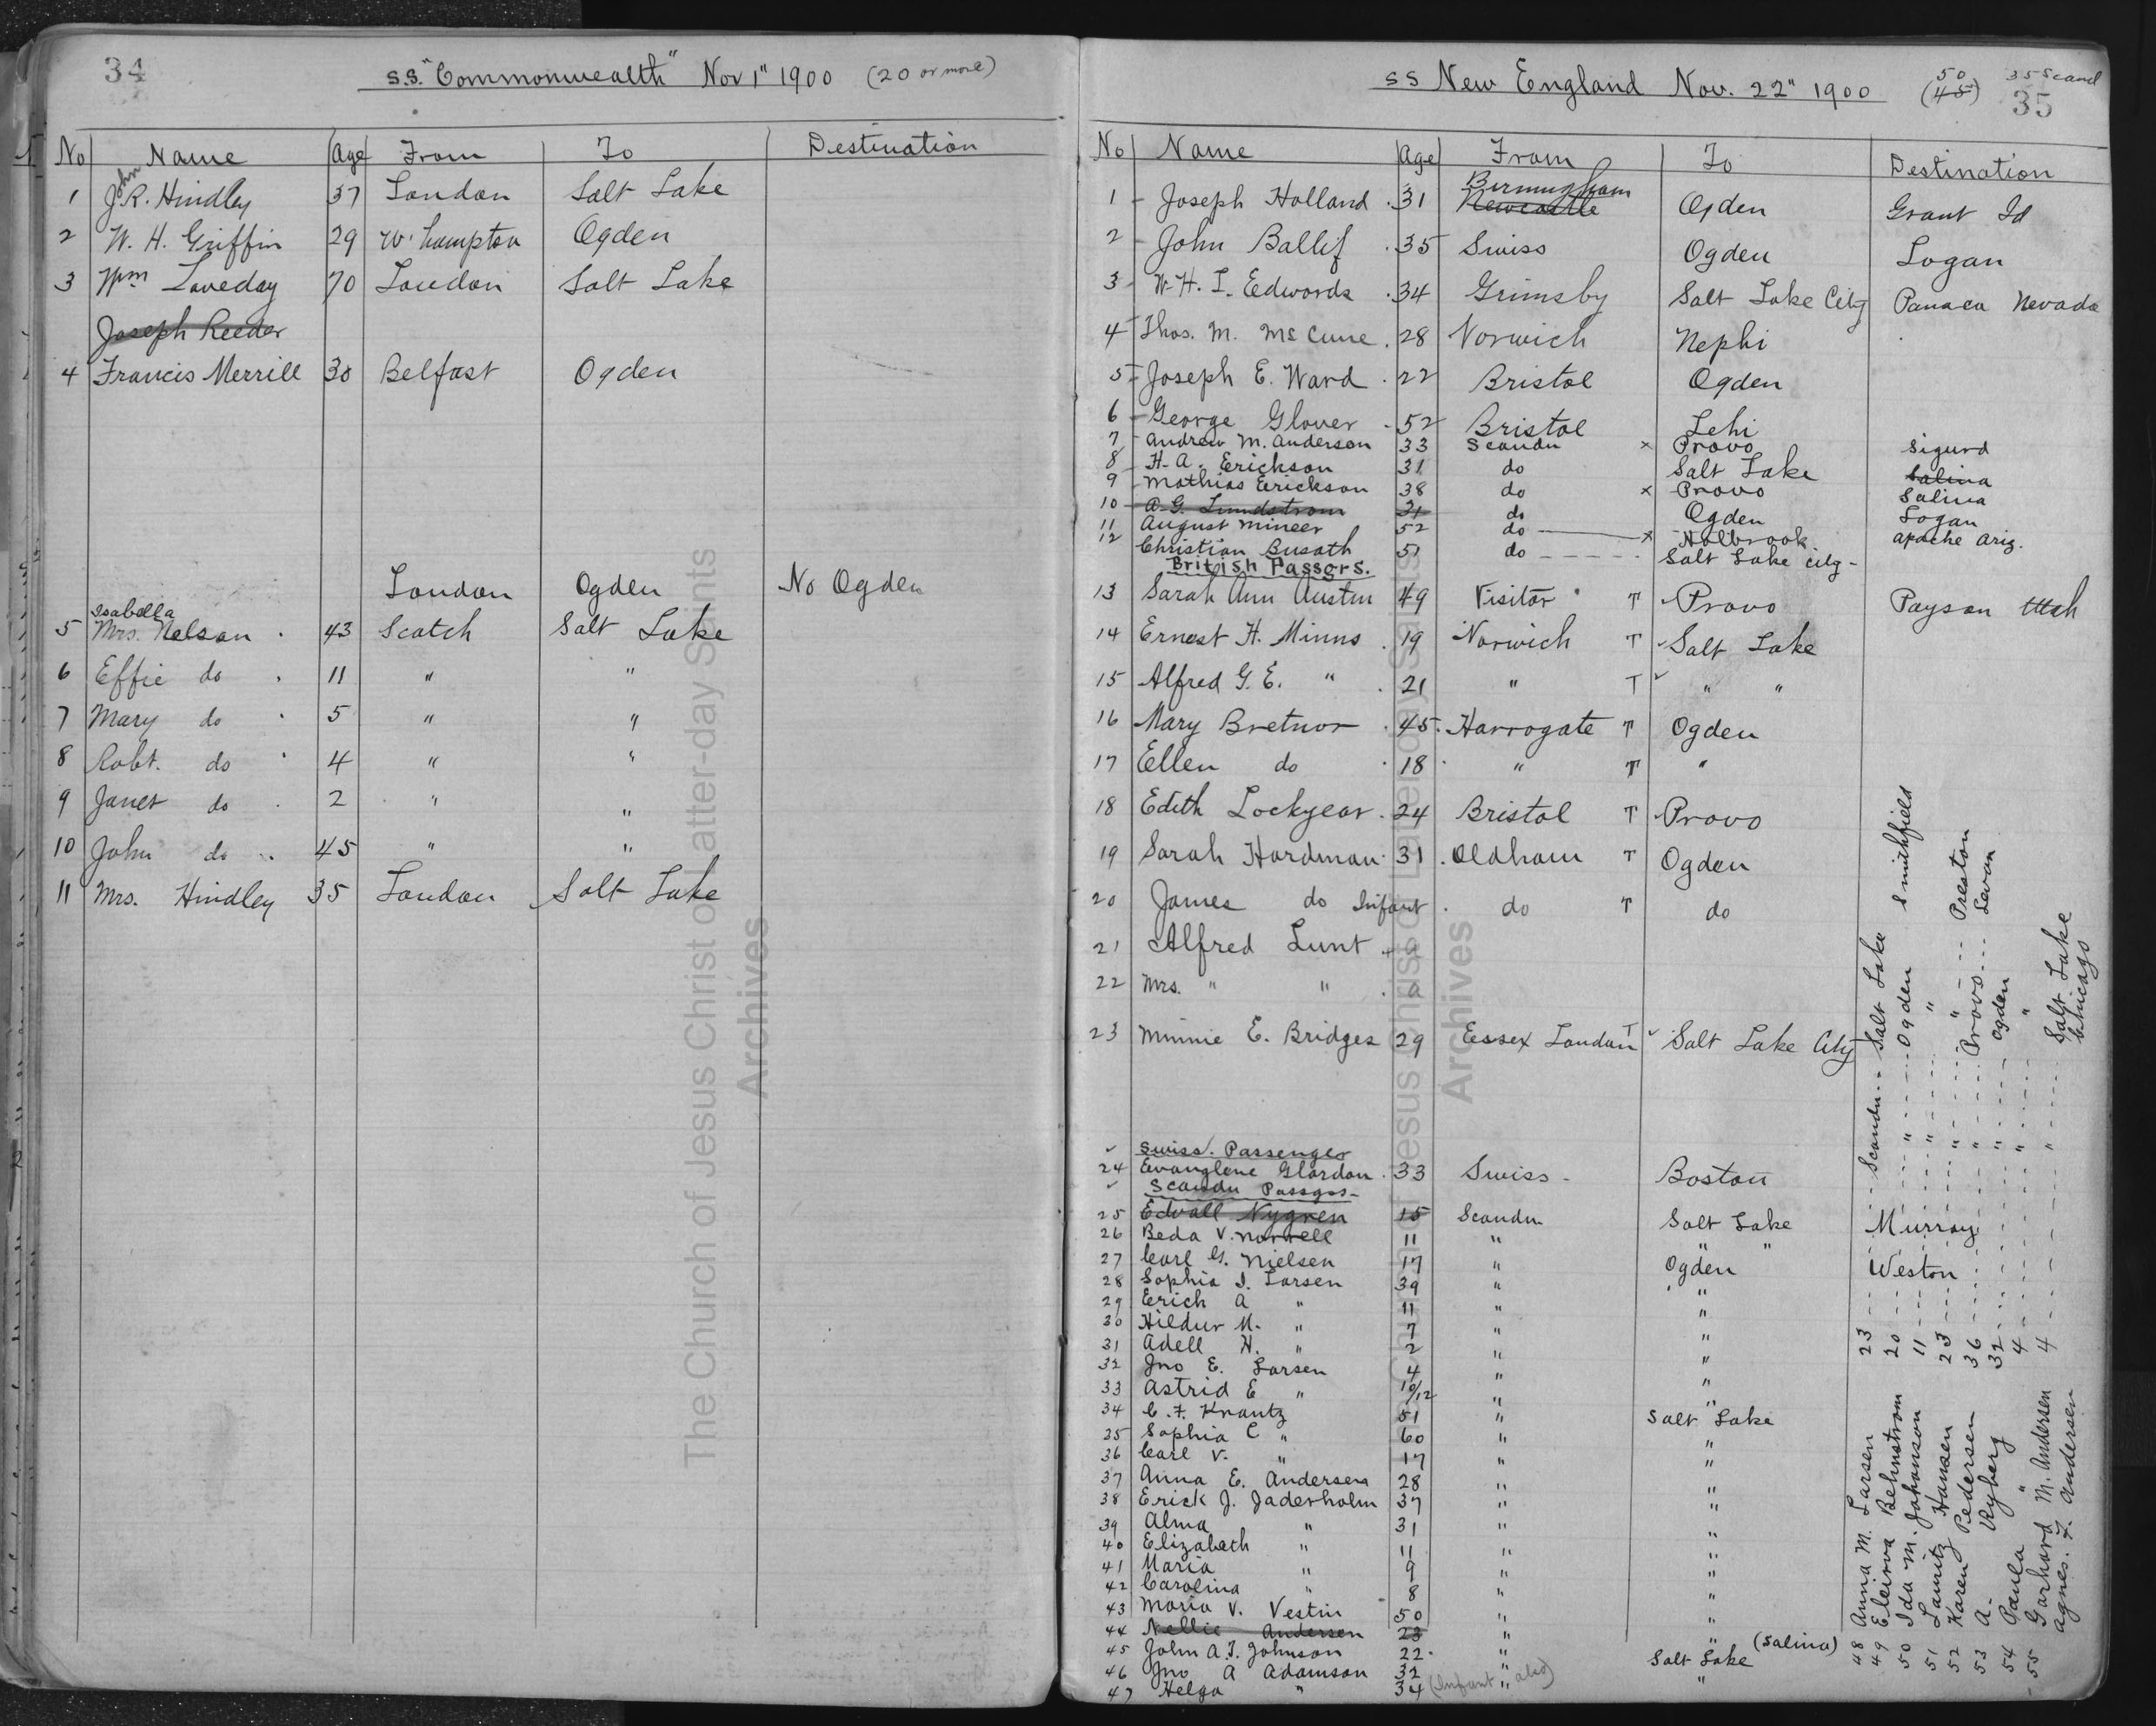 34
S.S. "Commonwealth" Nov 1" 1900 (20 or more)
No Name Age From To Destination
1 John J.R. Hindley 37 London Salt Lake
2 W. H. Griffin 29 W'hampton Ogden
3 Wm Loveday 70 London Salt Lake
Joseph Reeder
4 Francis Merrill 30 Belfast Ogden
London Ogden No Ogden
Isabella
5 Mrs. Nelson 43 Scotch Salt Lake
6 Effie do 11 " "
7 Mary do 5 " "
8 Robt. do 4 " "
9 Janet do 2 " "
10 John do 45 " "
11 Mrs. Hindley 35 London Salt Lake
The Church of Jesus Christ of Latter-day Saints
Archives
SS New England Nov. 22" 1900 (45) 50 35 Scand
35
No Name Age From To Destination
Birmingham
1 - Joseph Holland 31 Newcastle Ogden Grant Id
2 - John Ballif 35 Swiss Ogden Logan
3 - W. H. I. Edwards 34 Grimsby Salt Lake City Panaca Nevada
4 - Thos. M. McCune 28 Norwich Nephi
5 - Joseph E. Ward 22 Bristol Ogden
6 - George Glover 52 Bristol Lehi
7 - Andrew M. Anderson 33 Scandn x Provo Sigurd
8 - H. A. Erickson 31 do Salt Lake Salina
9 - Mathias Erickson 38 do x Provo Salina
10 - A. G. Lundstrom 31 do Ogden Logan
11 August Mineer 52 do x Holbrook Apache Ariz.
12 Christian Busath 51 do Salt Lake City -
British Passgrs.
13 Sarah Ann Austin 49 Visitor T Provo Payson Utah
14 Ernest H. Minns 19 Norwich T Salt Lake
15 Alfred G. E. " 21 " T " "
16 Mary Bretnor 45 Harrogate T Ogden
17 Ellen do 18 " T "
18 Edith Lockyear 24 Bristol T Provo
19 Sarah Hardman 31 Oldham T Ogden
20 James do Infant do T do
21 Alfred Lunt a
22 Mrs. " " a
23 Minnie E. Bridges 29 Essex London T Salt Lake City
Swiss. Passenger
24 Evanglene Glardon 33 Swiss - Boston
Scandn Passgrs -
25 Edvall Nygren 15 Scandn Salt Lake Murray
26 Beda V. Norrell 11 " " "
27 Carl G. Nielsen 17 " Ogden Weston
28 Sophia I. Larsen 39 " "
29 Erich A " 11 " "
30 Hildur M. " 7 " "
31 Adell H. " 2 " "
32 Jno E. Larsen 4 " "
33 Astrid E " 10/12 " "
34 C. F. Krantz 51 " Salt Lake
35 Sophia C " 60 " "
36 Carl V. " 17 " "
37 Anna E. Andersen 28 " "
38 Erick J. Jaderholm 37 " "
39 Alma " 31 " "
40 Elizabeth " 11 " "
41 Maria " 9 " "
42 Carolina " 8 " "
43 Maria V. Vestin 50 " "
44 Nellie Andersen 23 " "
45 John A. T. Johnson 22 " Salt Lake (Salina)
46 Jno A Adamson 32 " "
47 Helga " 34 (Infant also) "
48 Anna M. Larsen 23 Scandn Salt Lake
49 Behnstrom 20 " Ogden Smithfield
50 Ida M. Johanson 11 " "
51 Lauritz Hansen 23 " " Preston
52 Karen Pedersen 36 " Provo Levan
53 A. Ryberg 32 " Ogden
54 Paula " 4 " "
55 Garhard M. Andersen 4 " Salt Lake
Agnes. F. Andersen Chicago
The Church of Jesus Christ of Latter-day Saints
Archives